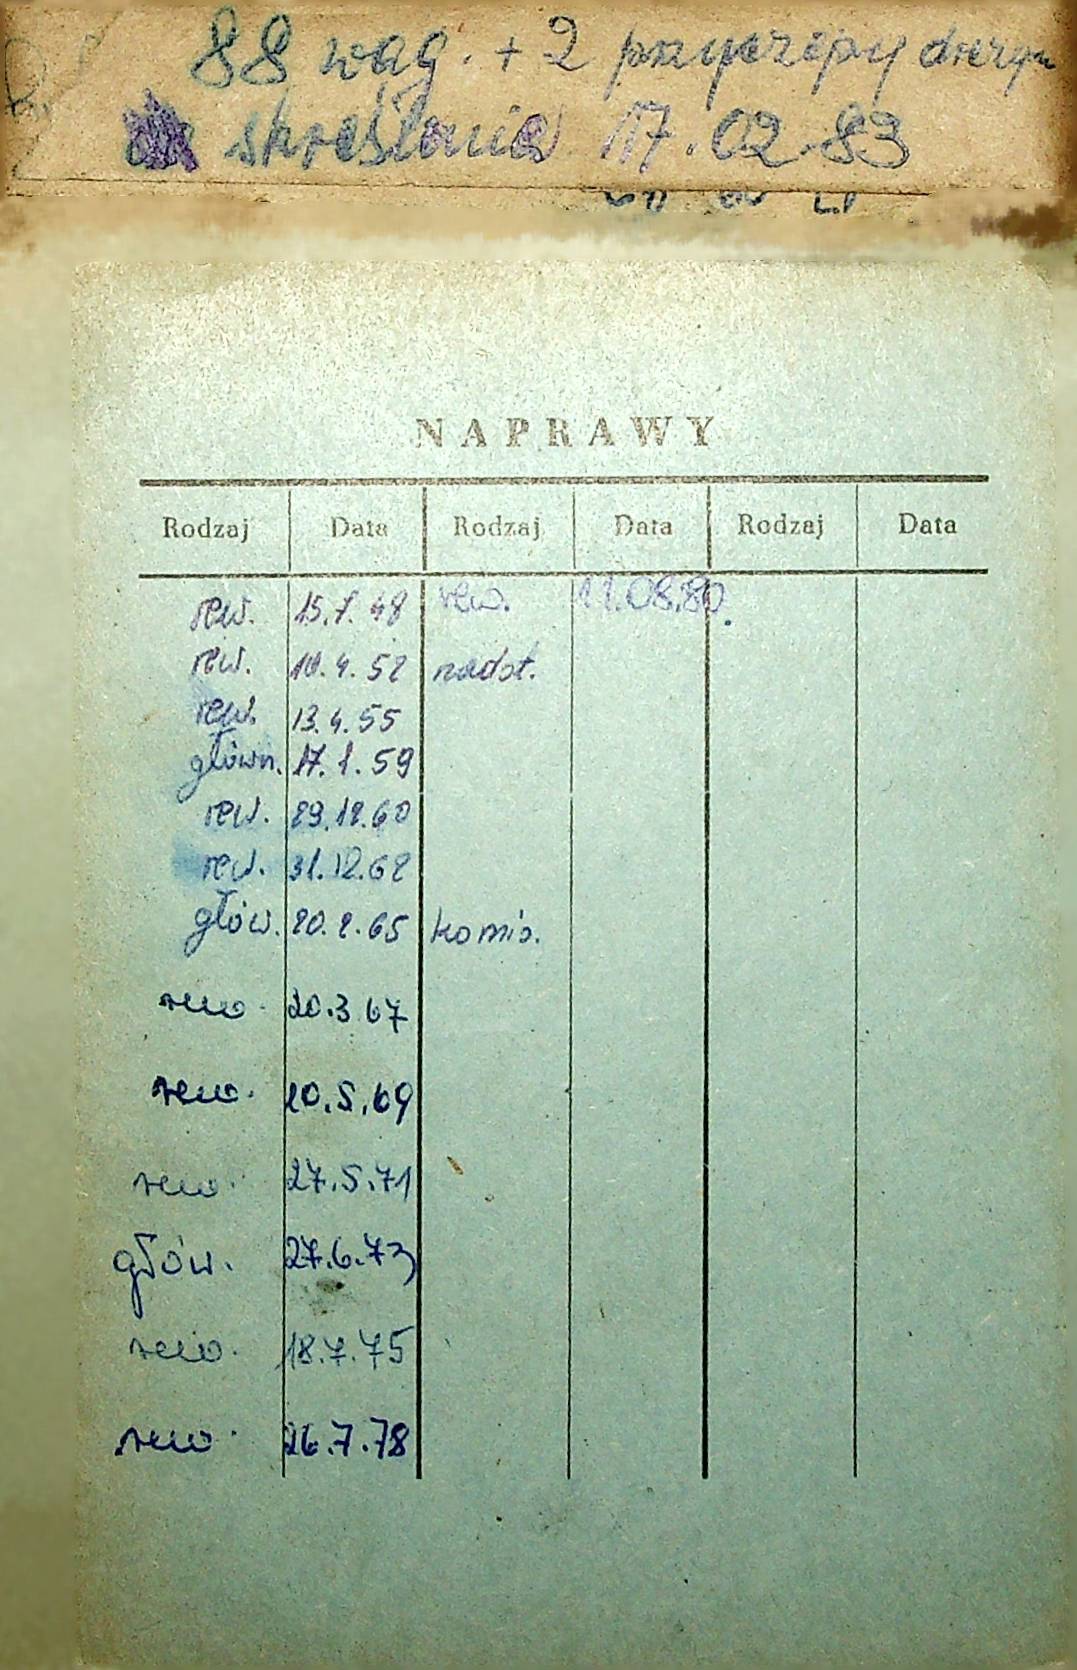 88 wag. + 2 przyczepy drezyn
skreślenia 17.02.83
NAPRAWY
Rodzaj Data Rodzaj Data Rodzaj Data
rew. 15.7.48 rew. 11.08.80.
rew. 10.4.52 nadst.
rew. 13.4.55
główn. 17.1.59
rew. 29.12.60
rew. 31.12.62
głów. 20.2.65 komis.
rew. 20.3 67
rew. 20.5.69
rew. 27.5.71
głów. 27.6.73
rew. 18.7.75
rew. 26.7.78